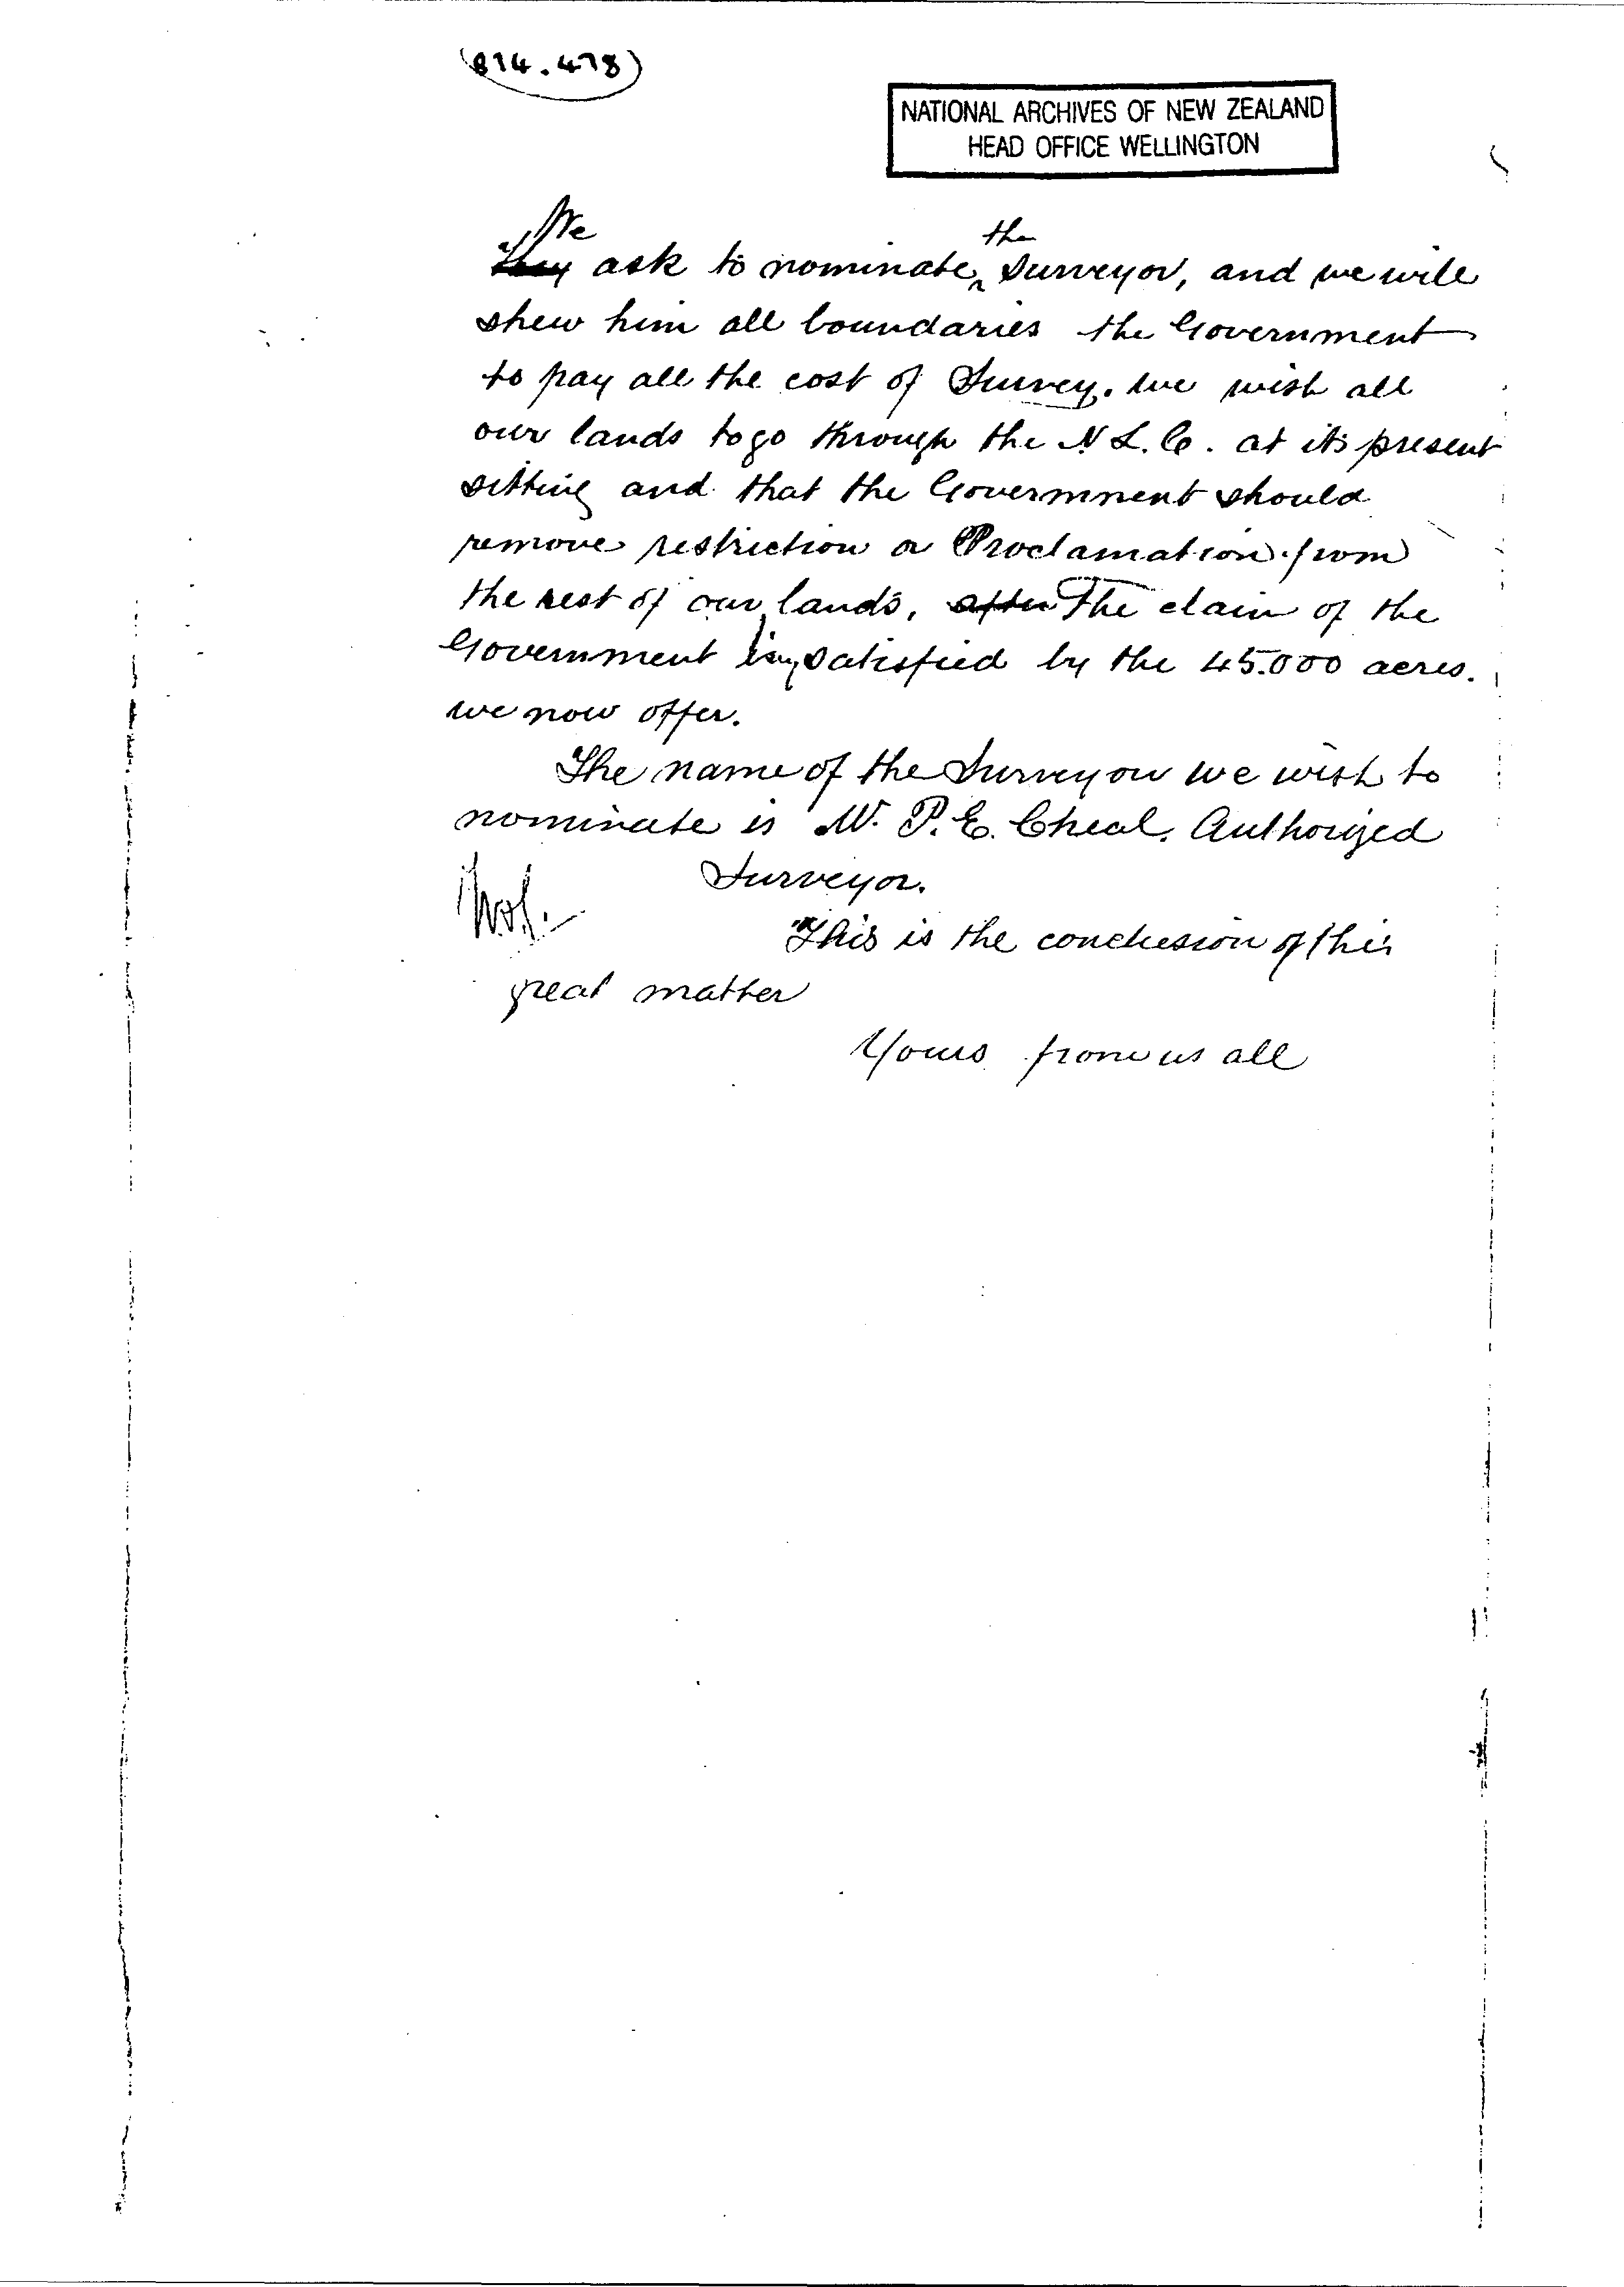 (814.478)
NATIONAL ARCHIVES OF NEW ZEALAND
HEAD OFFICE WELLINGTON
We the
They ask to nominate Surveyor, and we will
shew him all boundaries the Government
to pay all the cost of Survey. We wish all
our lands to go through the N L. C. at its present
sitting and that the Government should
remove restriction or Proclamation from
the rest of our lands, after The claim of the
Government is satisfied by the 45.000 acres.
we now offer.
The name of the Surveyor we wish to
nominate is Mr. P. E. Cheal. Authorized
Surveyor.
This is the conclusion of this
great matter
Yours from us all